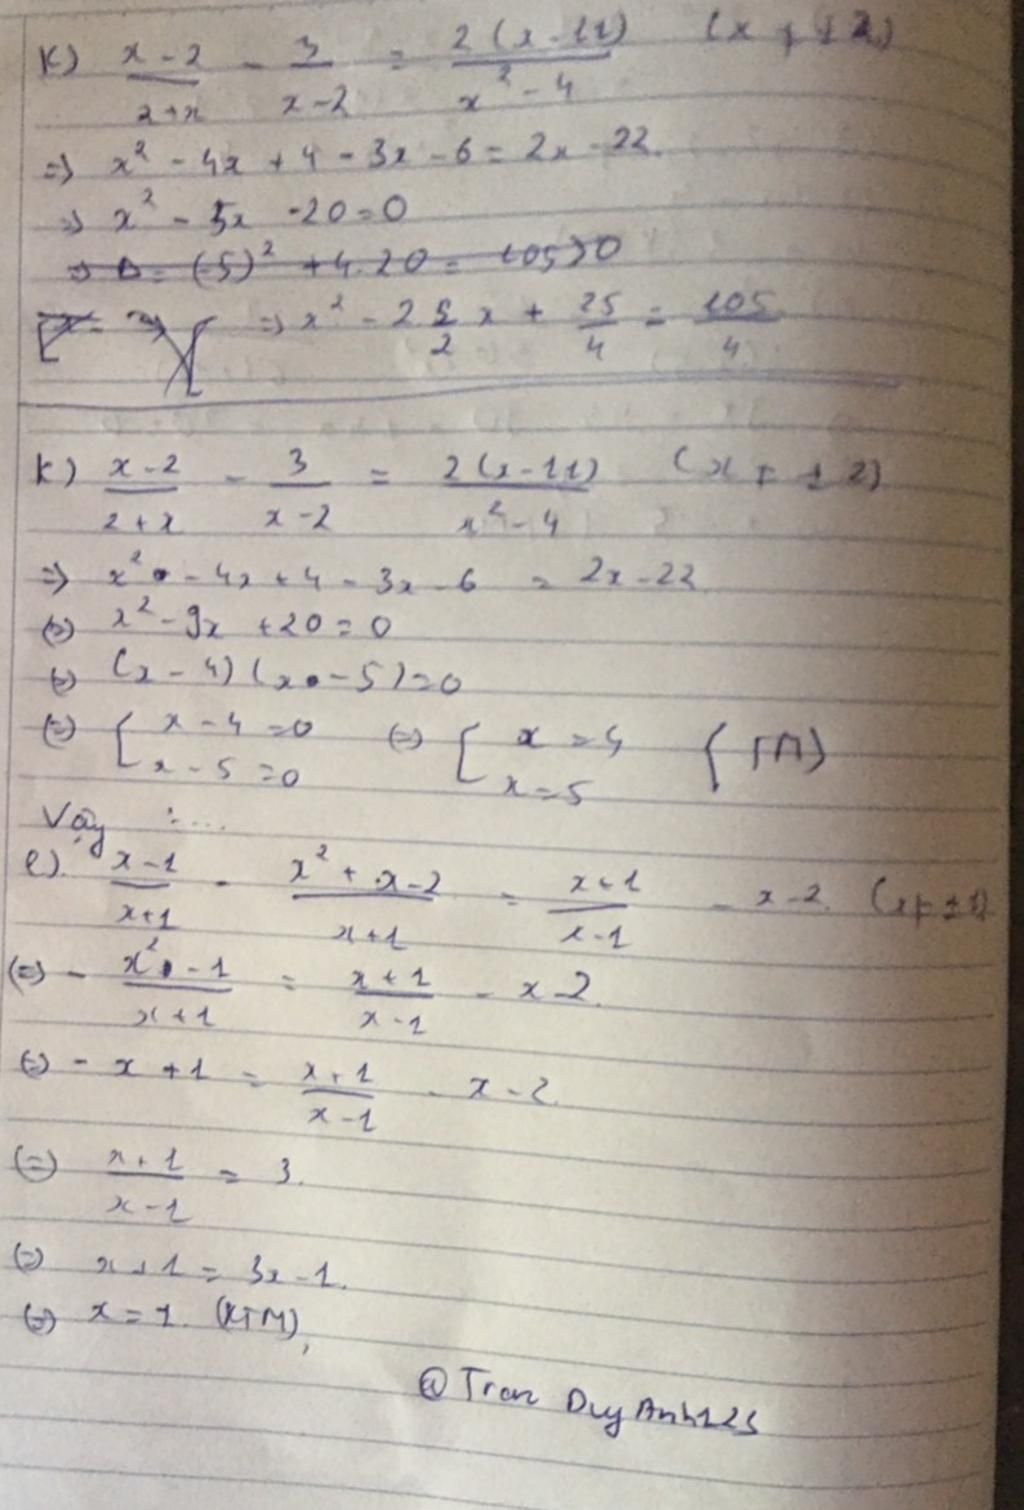 K) (x-2)/(2+x) - 3/(x-2) = 2(x-11)/(x²-4) (x ≠ ±2)
=> x² - 4x + 4 - 3x - 6 = 2x - 22.
=> x² - 5x - 20 = 0
=> Δ = (-5)² + 4.20 = 105 > 0
=> x² - 2 5/2 x + 25/4 = 105/4
K) (x-2)/(2+x) - 3/(x-2) = 2(x-11)/(x²-4) (x ≠ ±2)
=> x² - 4x + 4 - 3x - 6 = 2x - 22
(=) x² - 9x + 20 = 0
(=) (x - 4)(x - 5) = 0
(=) [ x - 4 = 0 (=) [ x = 4 (TM)
x - 5 = 0 x = 5
Vậy : ...
l) (x-1)/(x+1) - (x²+x-2)/(x+1) = (x+1)/(x-1) - x - 2. (x ≠ ±1)
(=) - (x²-1)/(x+1) = (x+1)/(x-1) - x - 2.
(=) - x + 1 = (x+1)/(x-1) - x - 2.
(=) (x+1)/(x-1) = 3.
(=) x + 1 = 3x - 1.
(=) x = 1. (KTM),
@Tran DuyAnh125